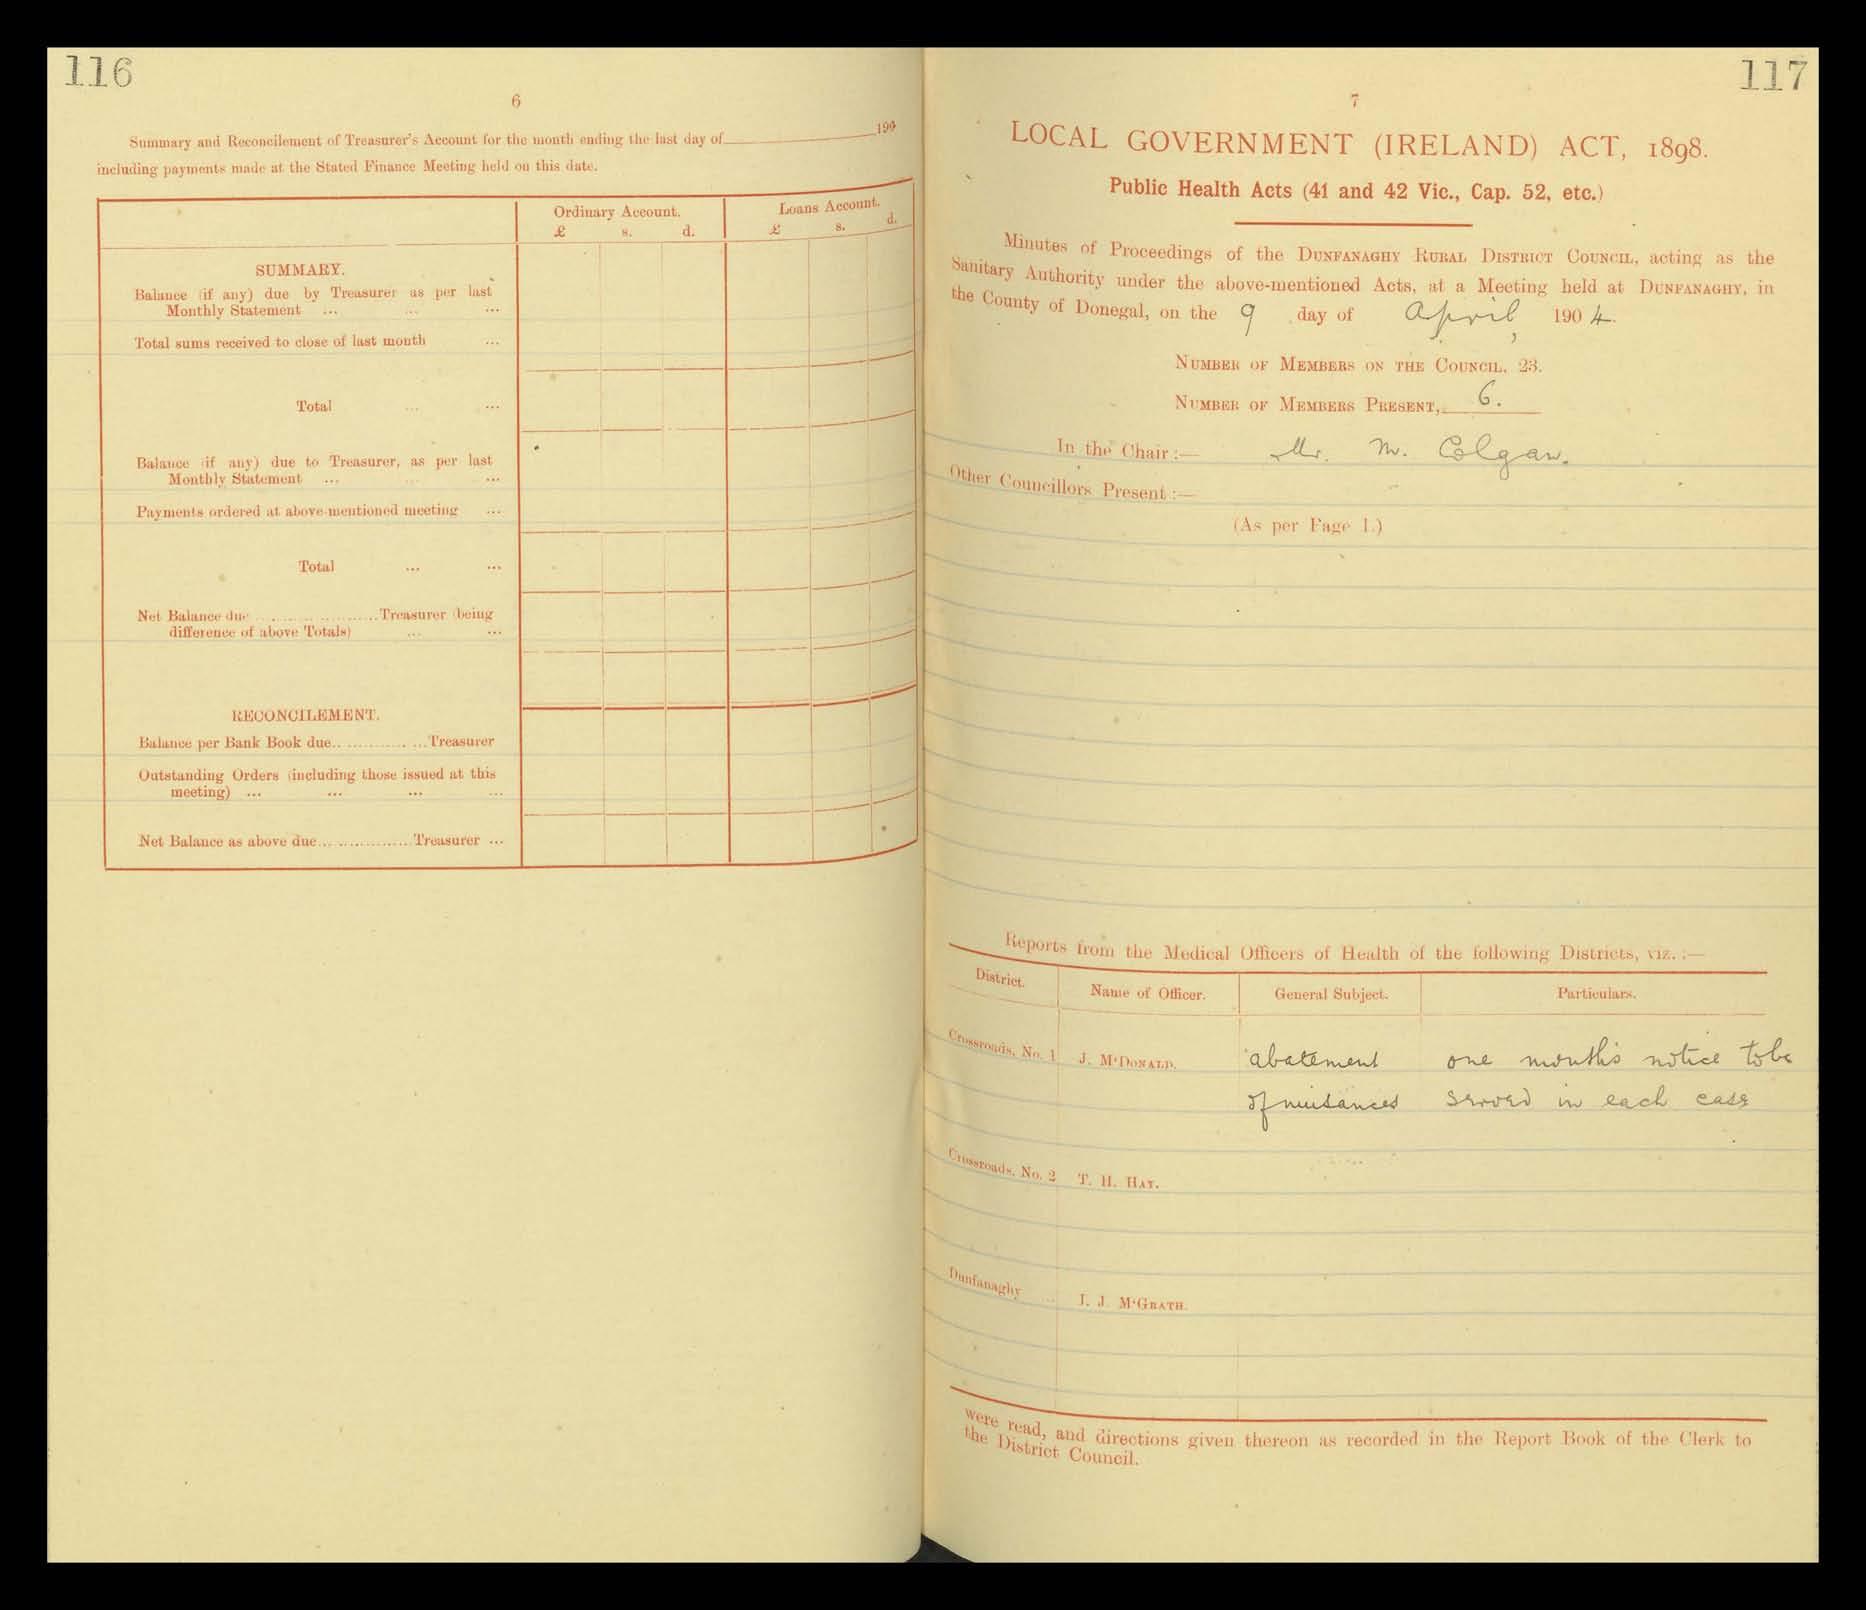 116
6
Summary and Reconcilement of Treasurer's Account for the month ending the last day of 190
including payments made at the Stated Finance Meeting held on this date.
Ordinary Account. Loans Account.
£ s. d. £ s. d.
SUMMARY.
Balance (if any) due by Treasurer as per last
Monthly Statement ... ... ...
Total sums received to close of last month ...
Total ... ...
Balance (if any) due to Treasurer, as per last
Monthly Statement ... ... ...
Payments ordered at above-mentioned meeting ...
Total ... ...
Net Balance due ........................Treasurer (being
difference of above Totals) ... ...
RECONCILEMENT.
Balance per Bank Book due..................Treasurer
Outstanding Orders (including those issued at this
meeting) ... ... ... ...
Net Balance as above due..................Treasurer ...
117
7
LOCAL GOVERNMENT (IRELAND) ACT, 1898.
Public Health Acts (41 and 42 Vic., Cap. 52, etc.)
Minutes of Proceedings of the DUNFANAGHY RURAL DISTRICT COUNCIL, acting as the
Sanitary Authority under the above-mentioned Acts, at a Meeting held at DUNFANAGHY, in
the County of Donegal, on the 9 day of April, 1904.
NUMBER OF MEMBERS ON THE COUNCIL, 23.
NUMBER OF MEMBERS PRESENT, 6.
In the Chair:— Mr. M. Colgan.
Other Councillors Present:—
(As per Page 1.)
Reports from the Medical Officers of Health of the following Districts, viz.:—
District. Name of Officer. General Subject. Particulars.
Crossroads, No. 1 J. M'DONALD. abatement one month's notice to be
of nuisances served in each case
Crossroads, No. 2 T. H. HAY.
Dunfanaghy ... J. J. M'GRATH.
were read, and directions given thereon as recorded in the Report Book of the Clerk to
the District Council.